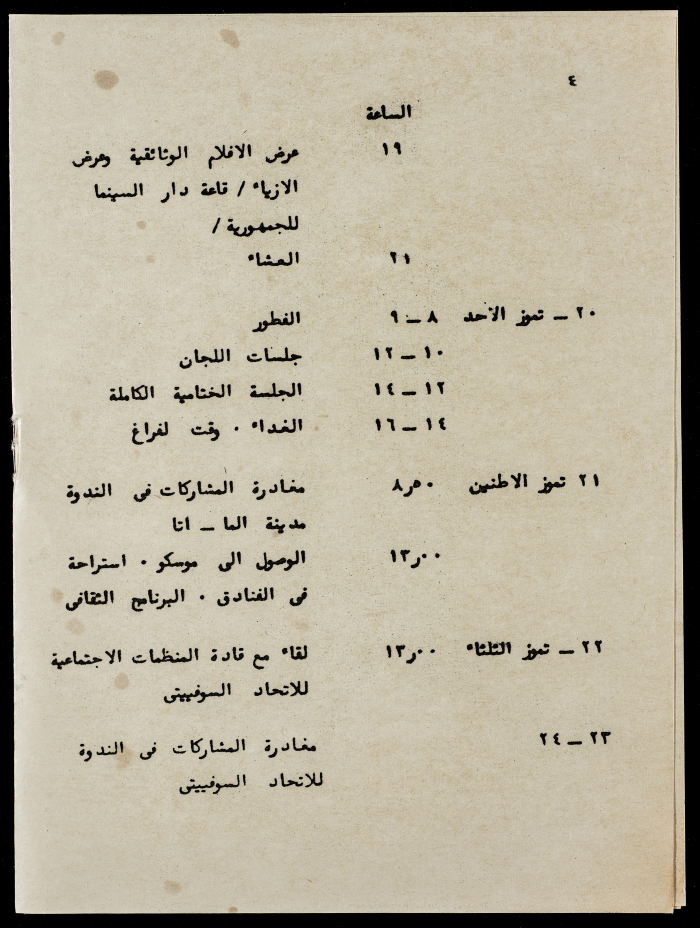 ٤
الساعة
١٩ عرض الافلام الوثائقية وعرض
الازياء / قاعة دار السينما
للجمهورية /
٢١ العشاء
٢٠ ــ تموز الاحد ٨ ــ ٩ الفطور
١٠ ــ ١٢ جلسات اللجان
١٢ ــ ١٤ الجلسة الختامية الكاملة
١٤ ــ ١٦ الغداء ٠ وقت لفراغ
٢١ تموز الاطنين ٥٠ر٨ مغادرة المشاركات فى الندوة
مدينة الما ــ اتا
٠٠ر١٣ الوصول الى موسكو ٠ استراحة
فى الفنادق ٠ البرنامج الثقافى
٢٢ ــ تموز الثلثاء ٠٠ر١٣ لقاء مع قادة المنظمات الاجتماعية
للاتحاد السوفييتى
٢٣ ــ ٢٤ مغادرة المشاركات فى الندوة
للاتحاد السوفييتى